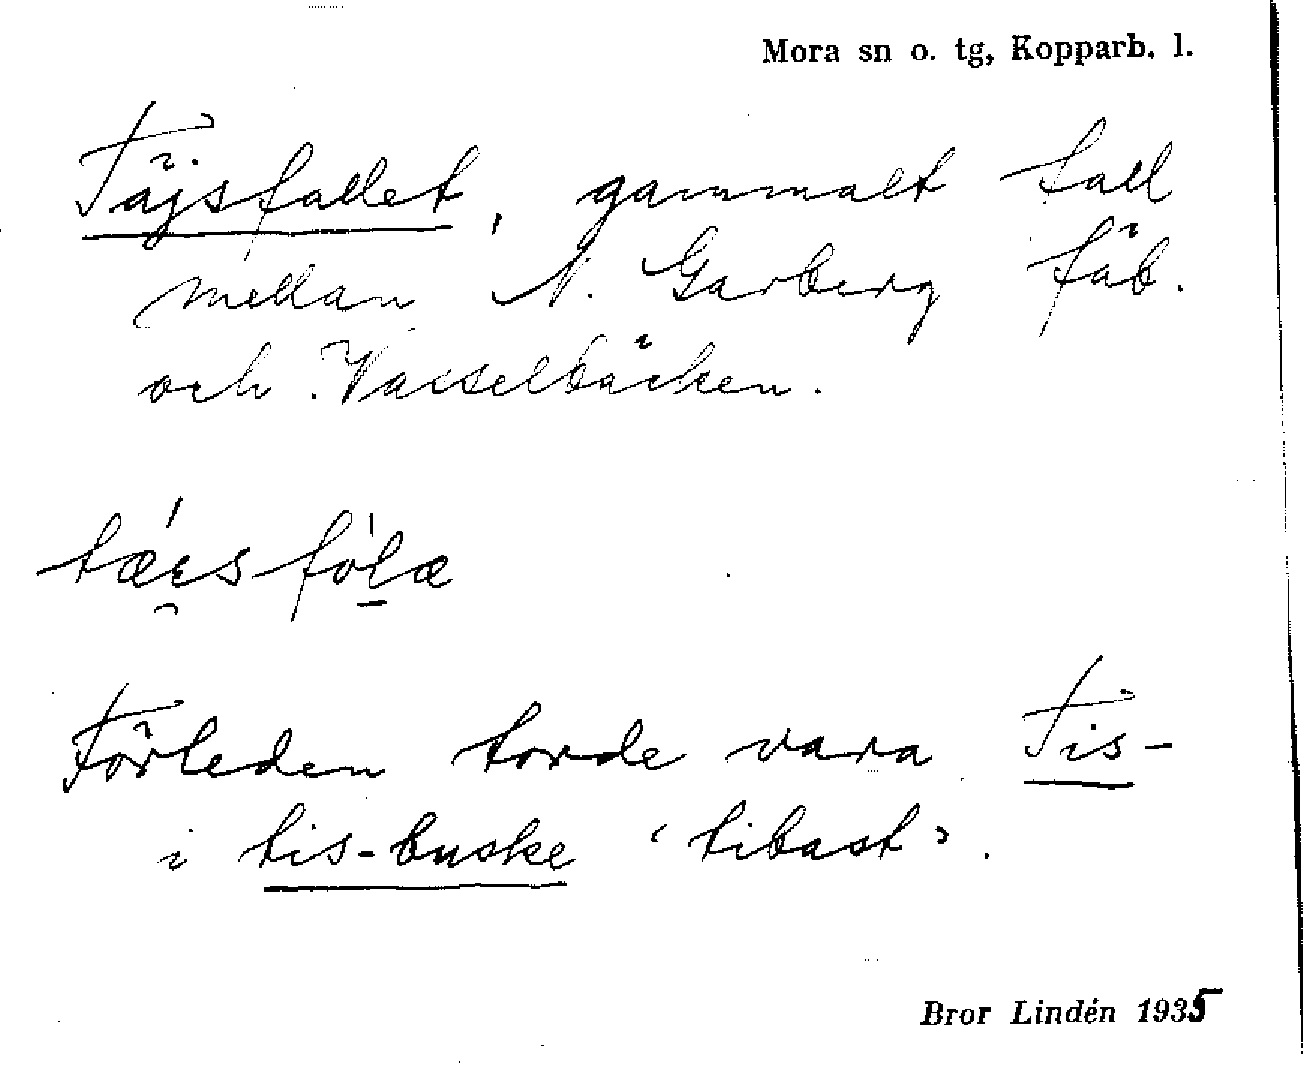 Mora sn o. tg, Kopparb. l.
Täjsfallet, gammalt fall
mellan N. Garberg fäb.
och Vasselbäcken.
Förleden torde vara Tis-
i tis-buske ‘tibast’.
Bror Lindén 1935